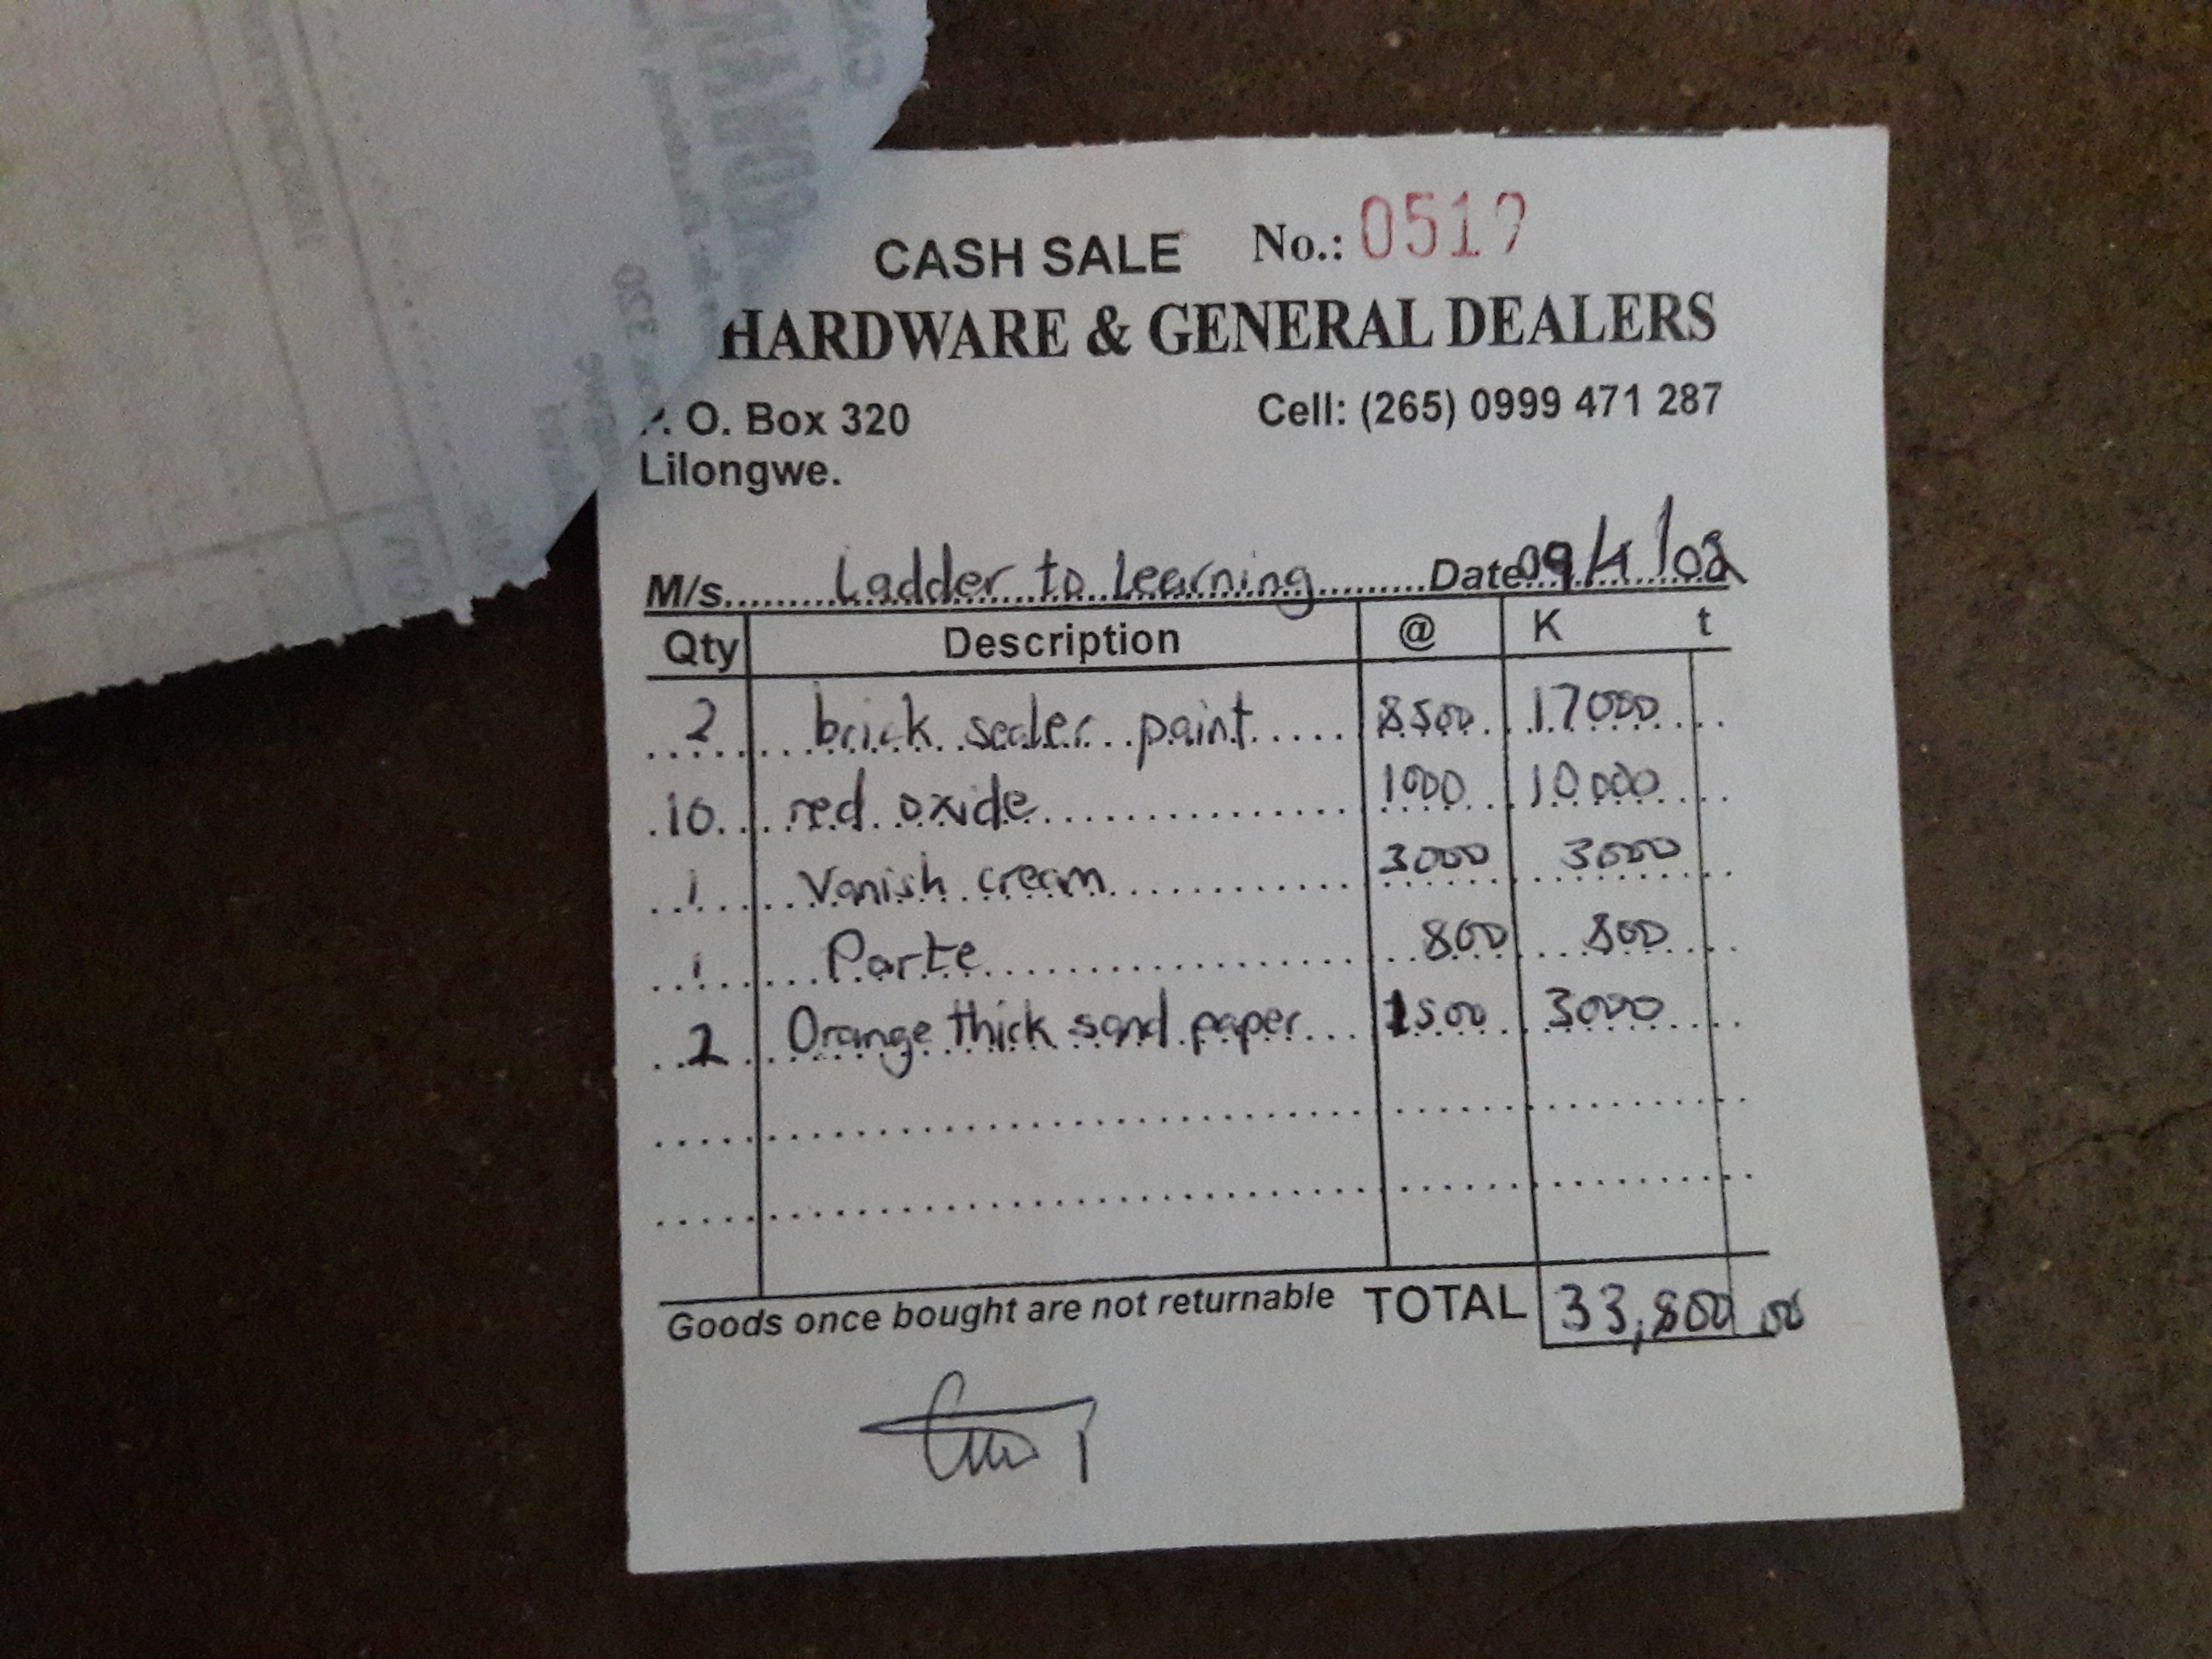 CASH SALE No.: 0517
HARDWARE & GENERAL DEALERS
P. O. Box 320 Cell: (265) 0999 471 287
Lilongwe.
M/s. Ladder to Learning Date 09/4/02
Qty Description @ K t
2 brick sealer paint 8500 17000
10 red oxide 1000 10000
1 Vanish cream 3000 3000
1 Parte 800 800
2 Orange thick sand paper 1500 3000
Goods once bought are not returnable TOTAL 33,800 00